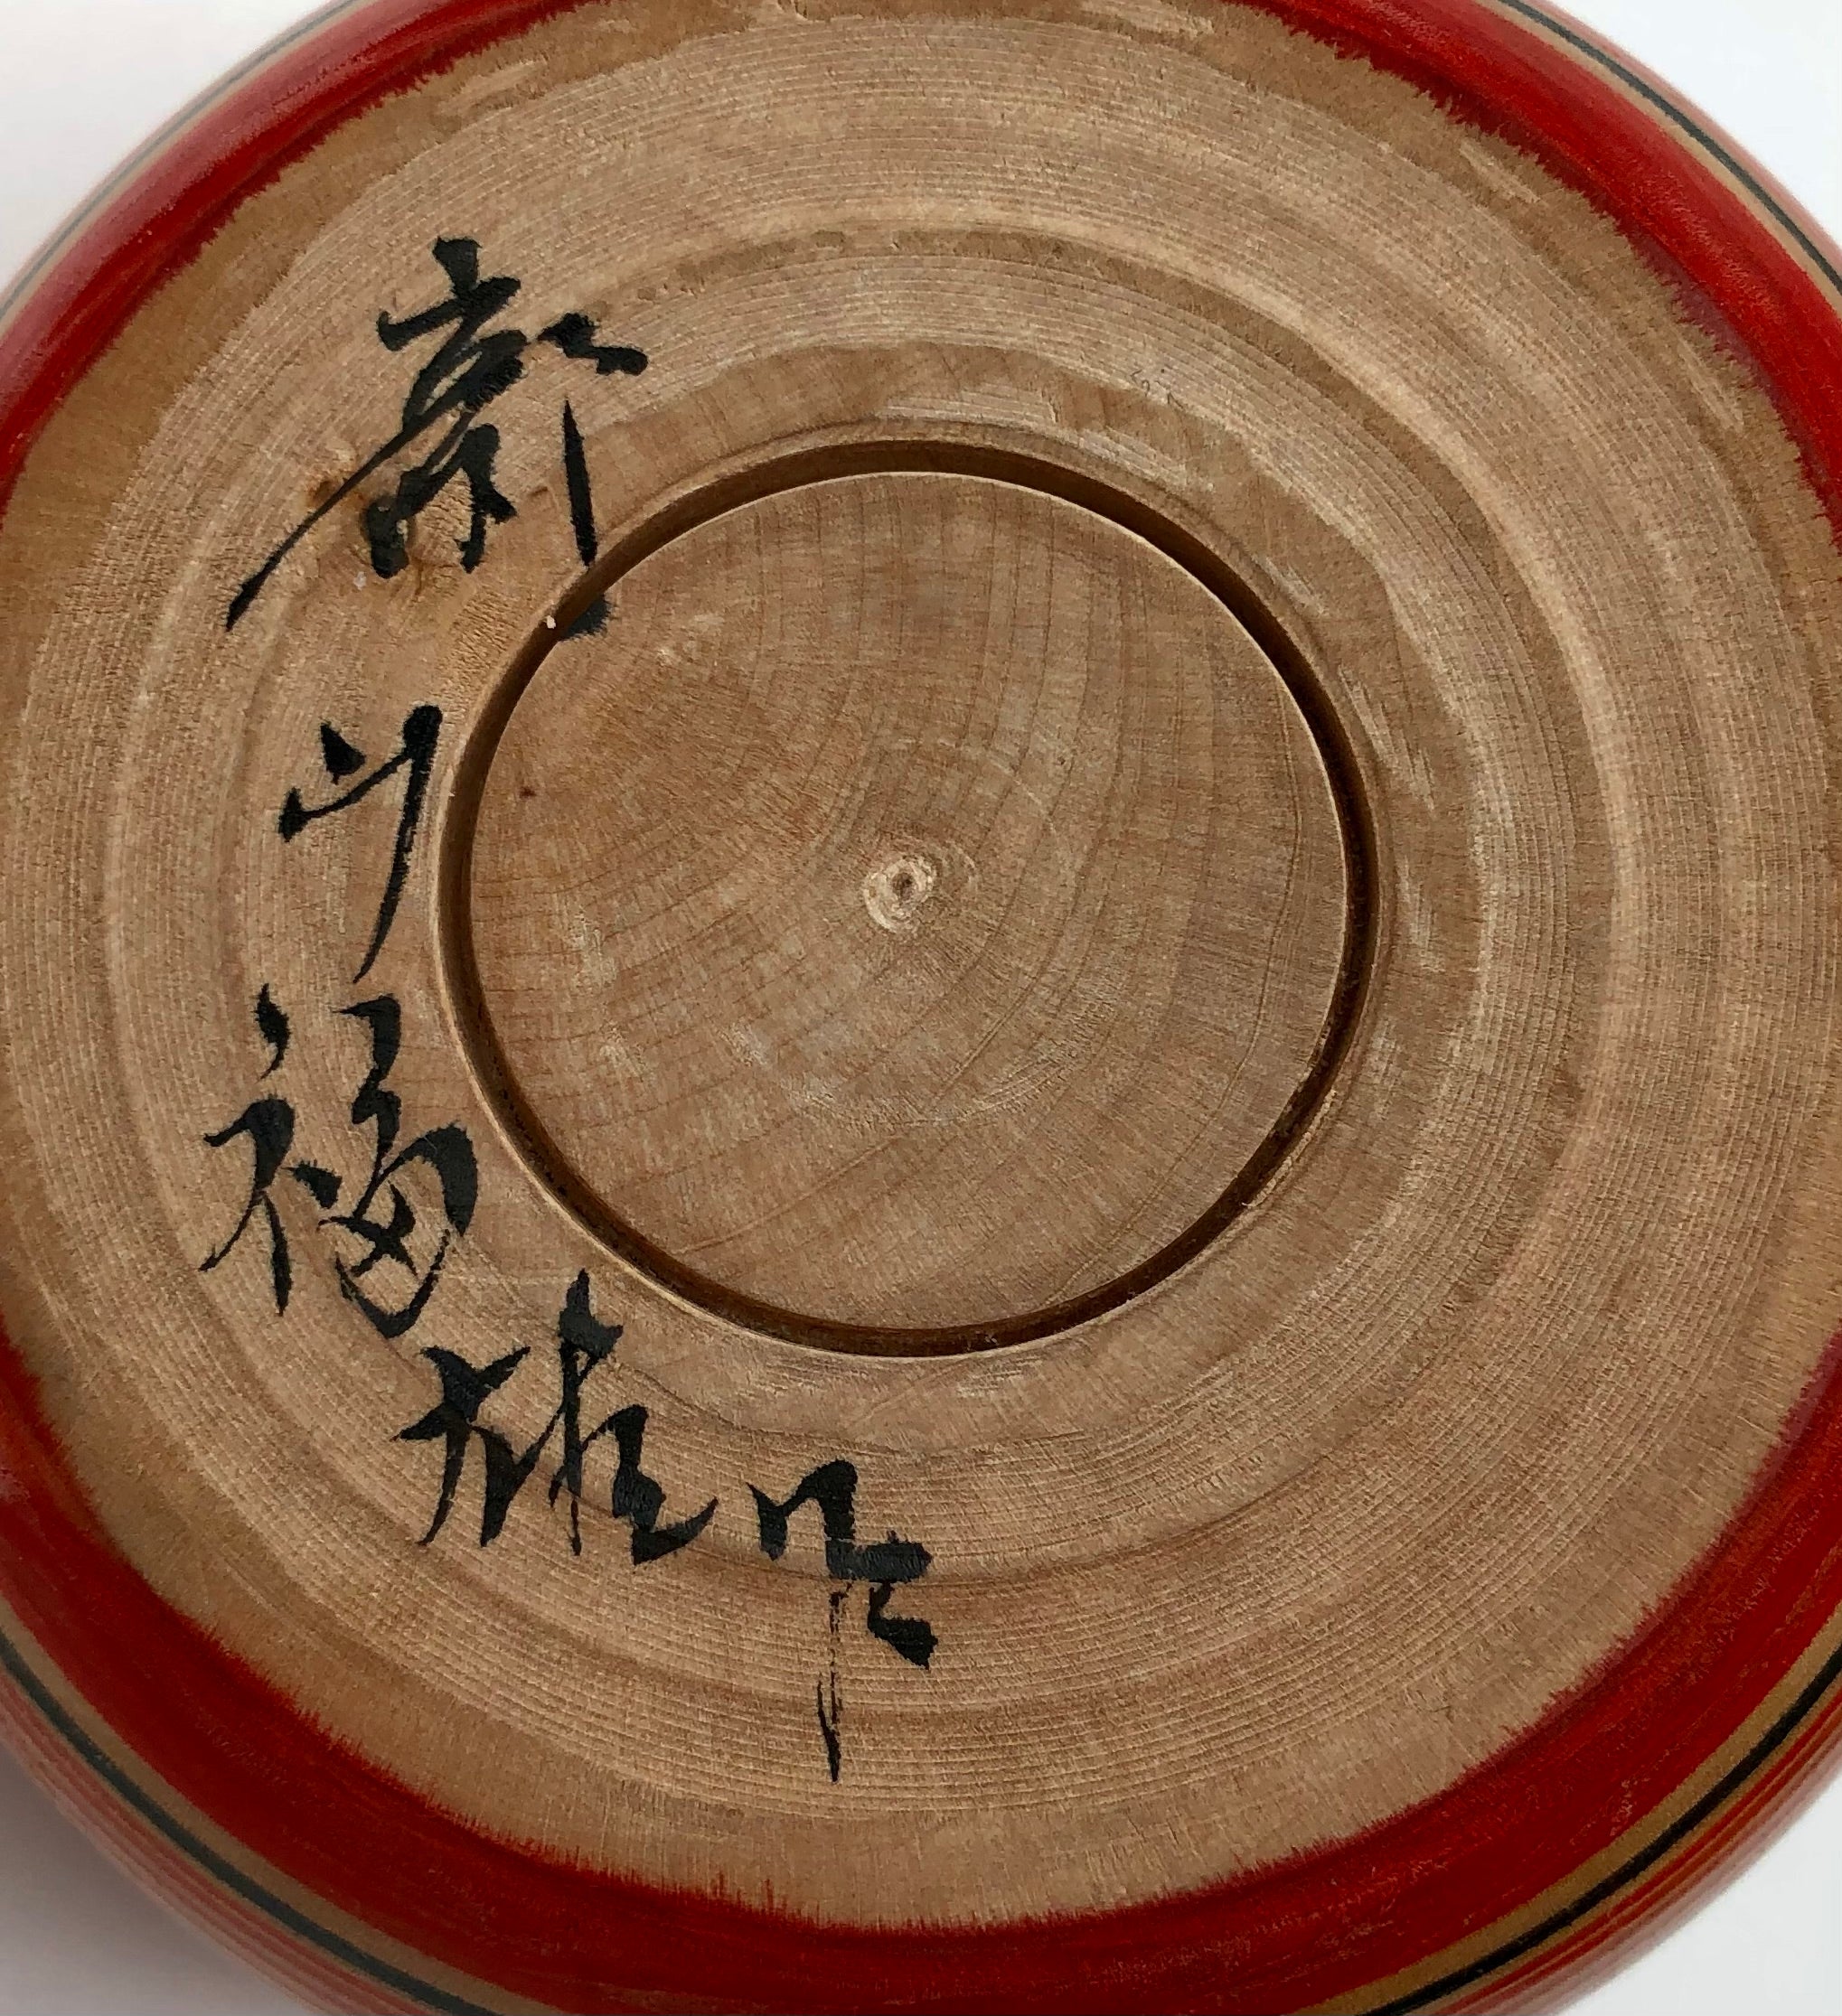 新山福雄